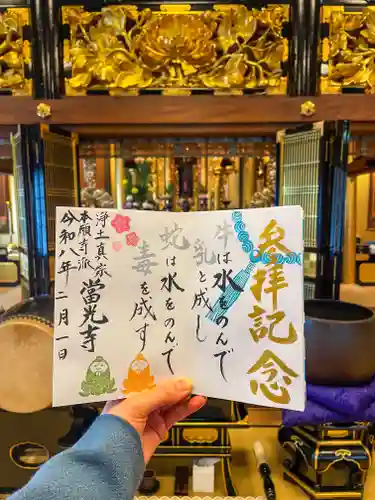 参拝記念
牛は水をのんで
乳と成し
蛇は水をのんで
毒を成す
當光寺
浄土真宗
本願寺派
令和八年二月一日